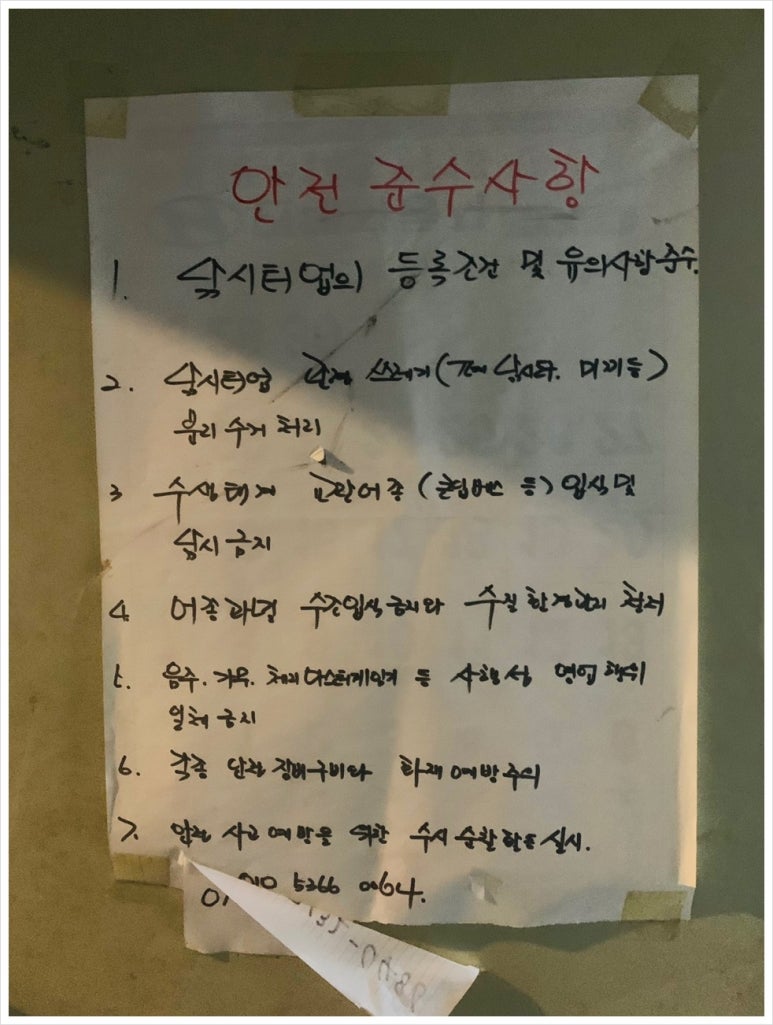 안전 준수사항
1. 낚시터업의 등록조건 및 유의사항준수.
2. 낚시터업 관련 쓰레기(폐낚시대. 미끼등)
분리 수거 처리
3 수생태계 교란어종(큰입베스 등) 입식및
낚시 금지
4. 어종과밀 수조입식금지와 수질환경관리 철저
5. 음주. 가무. 등 사행성 영업행위
일체 금지
6. 각종 안전장비구비와 화재예방주의
7. 안전사고예방을 위한 수시순찰활동실시.
010 5266 0064.